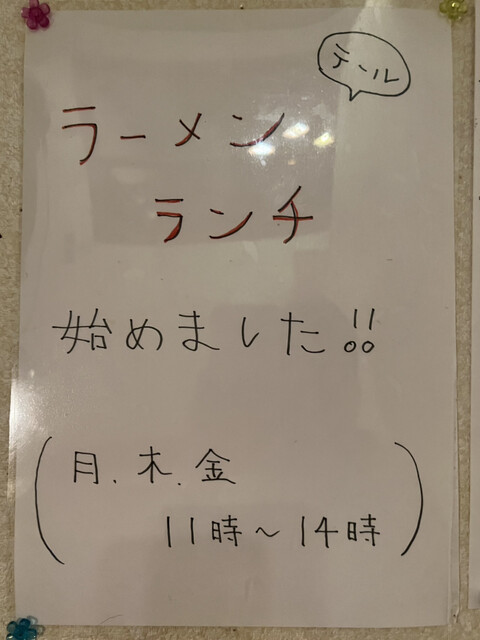 テール
ラーメン
ランチ
始めました!!
(月.木.金
11時～14時)